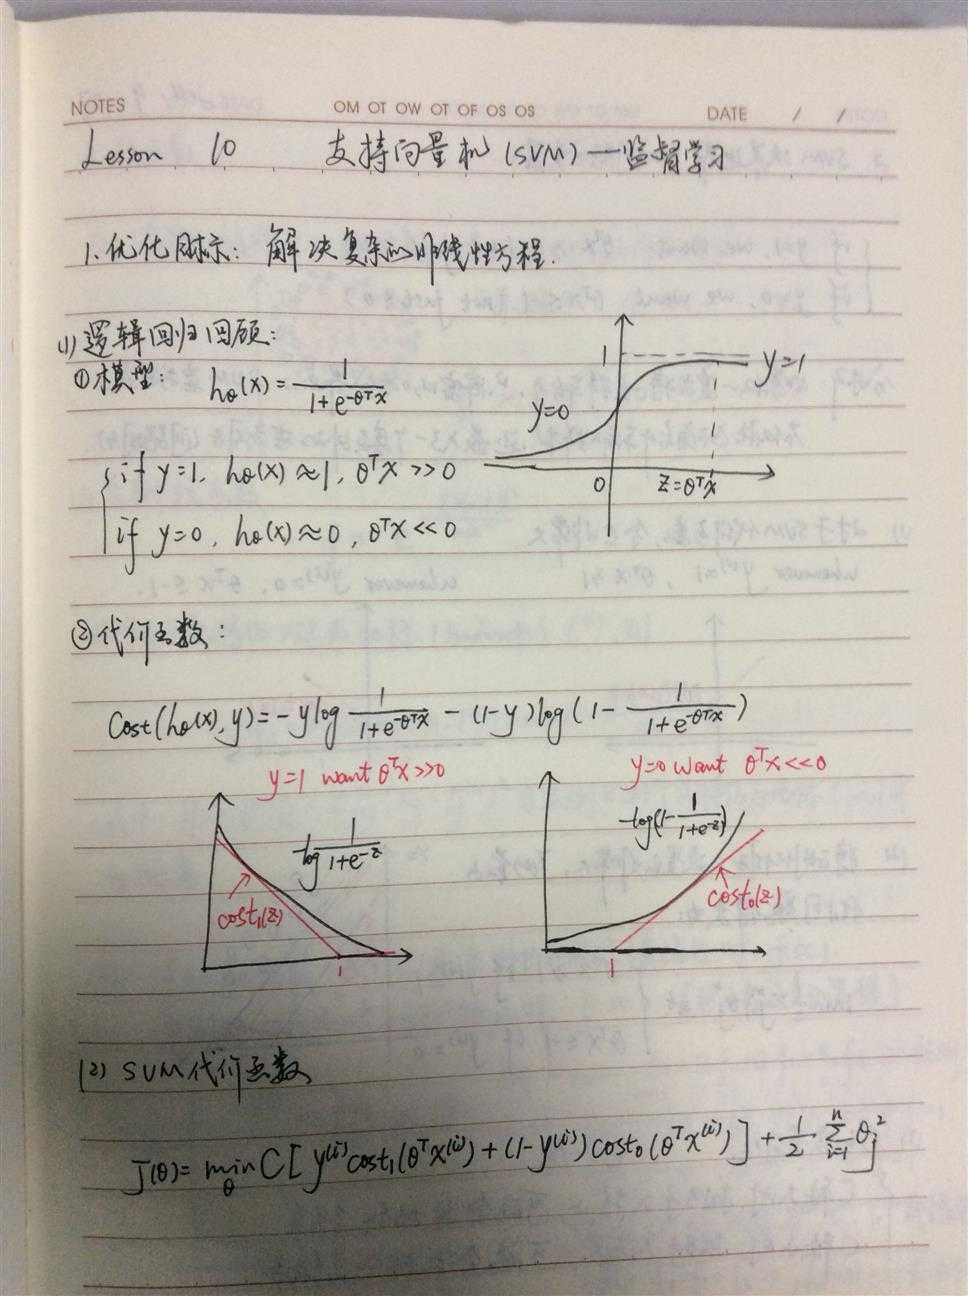 NOTES OM OT OW OT OF OS OS DATE / /
Lesson 10 支持向量机(SVM)—监督学习
1.优化目标: 解决复杂的非线性方程.
(1)逻辑回归回顾:
①模型: hθ(x)=1/(1+e^(-θᵀx))
1
y=1
y=0
0 z=θᵀx
if y=1, hθ(x)≈1, θᵀx>>0
if y=0, hθ(x)≈0, θᵀx<<0
②代价函数:
Cost(hθ(x),y)=-ylog 1/(1+e^(-θᵀx)) -(1-y)log(1- 1/(1+e^(-θᵀx)))
y=1 want θᵀx>>0
y=0 want θᵀx<<0
-log 1/(1+e^(-z))
-log(1- 1/(1+e^(-z)))
cost₁(z)
cost₀(z)
1
1
(2) SVM代价函数
J(θ)=min_θ C[y⁽ⁱ⁾cost₁(θᵀx⁽ⁱ⁾)+(1-y⁽ⁱ⁾)cost₀(θᵀx⁽ⁱ⁾)]+1/2 Σ_{i=1}^{n} θⱼ²